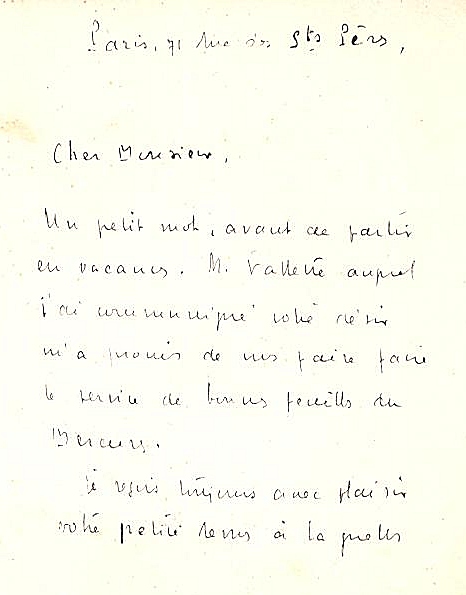 Paris, 71 rue des Sts Pères,
Cher Monsieur,
Un petit mot, avant de partir
en vacances. M. Vallette auquel
j'ai communiqué votre désir
m'a promis de vous faire faire
le service de bonnes feuilles du
Mercure.
Je reçois toujours avec plaisir
votre petite revue à laquelle